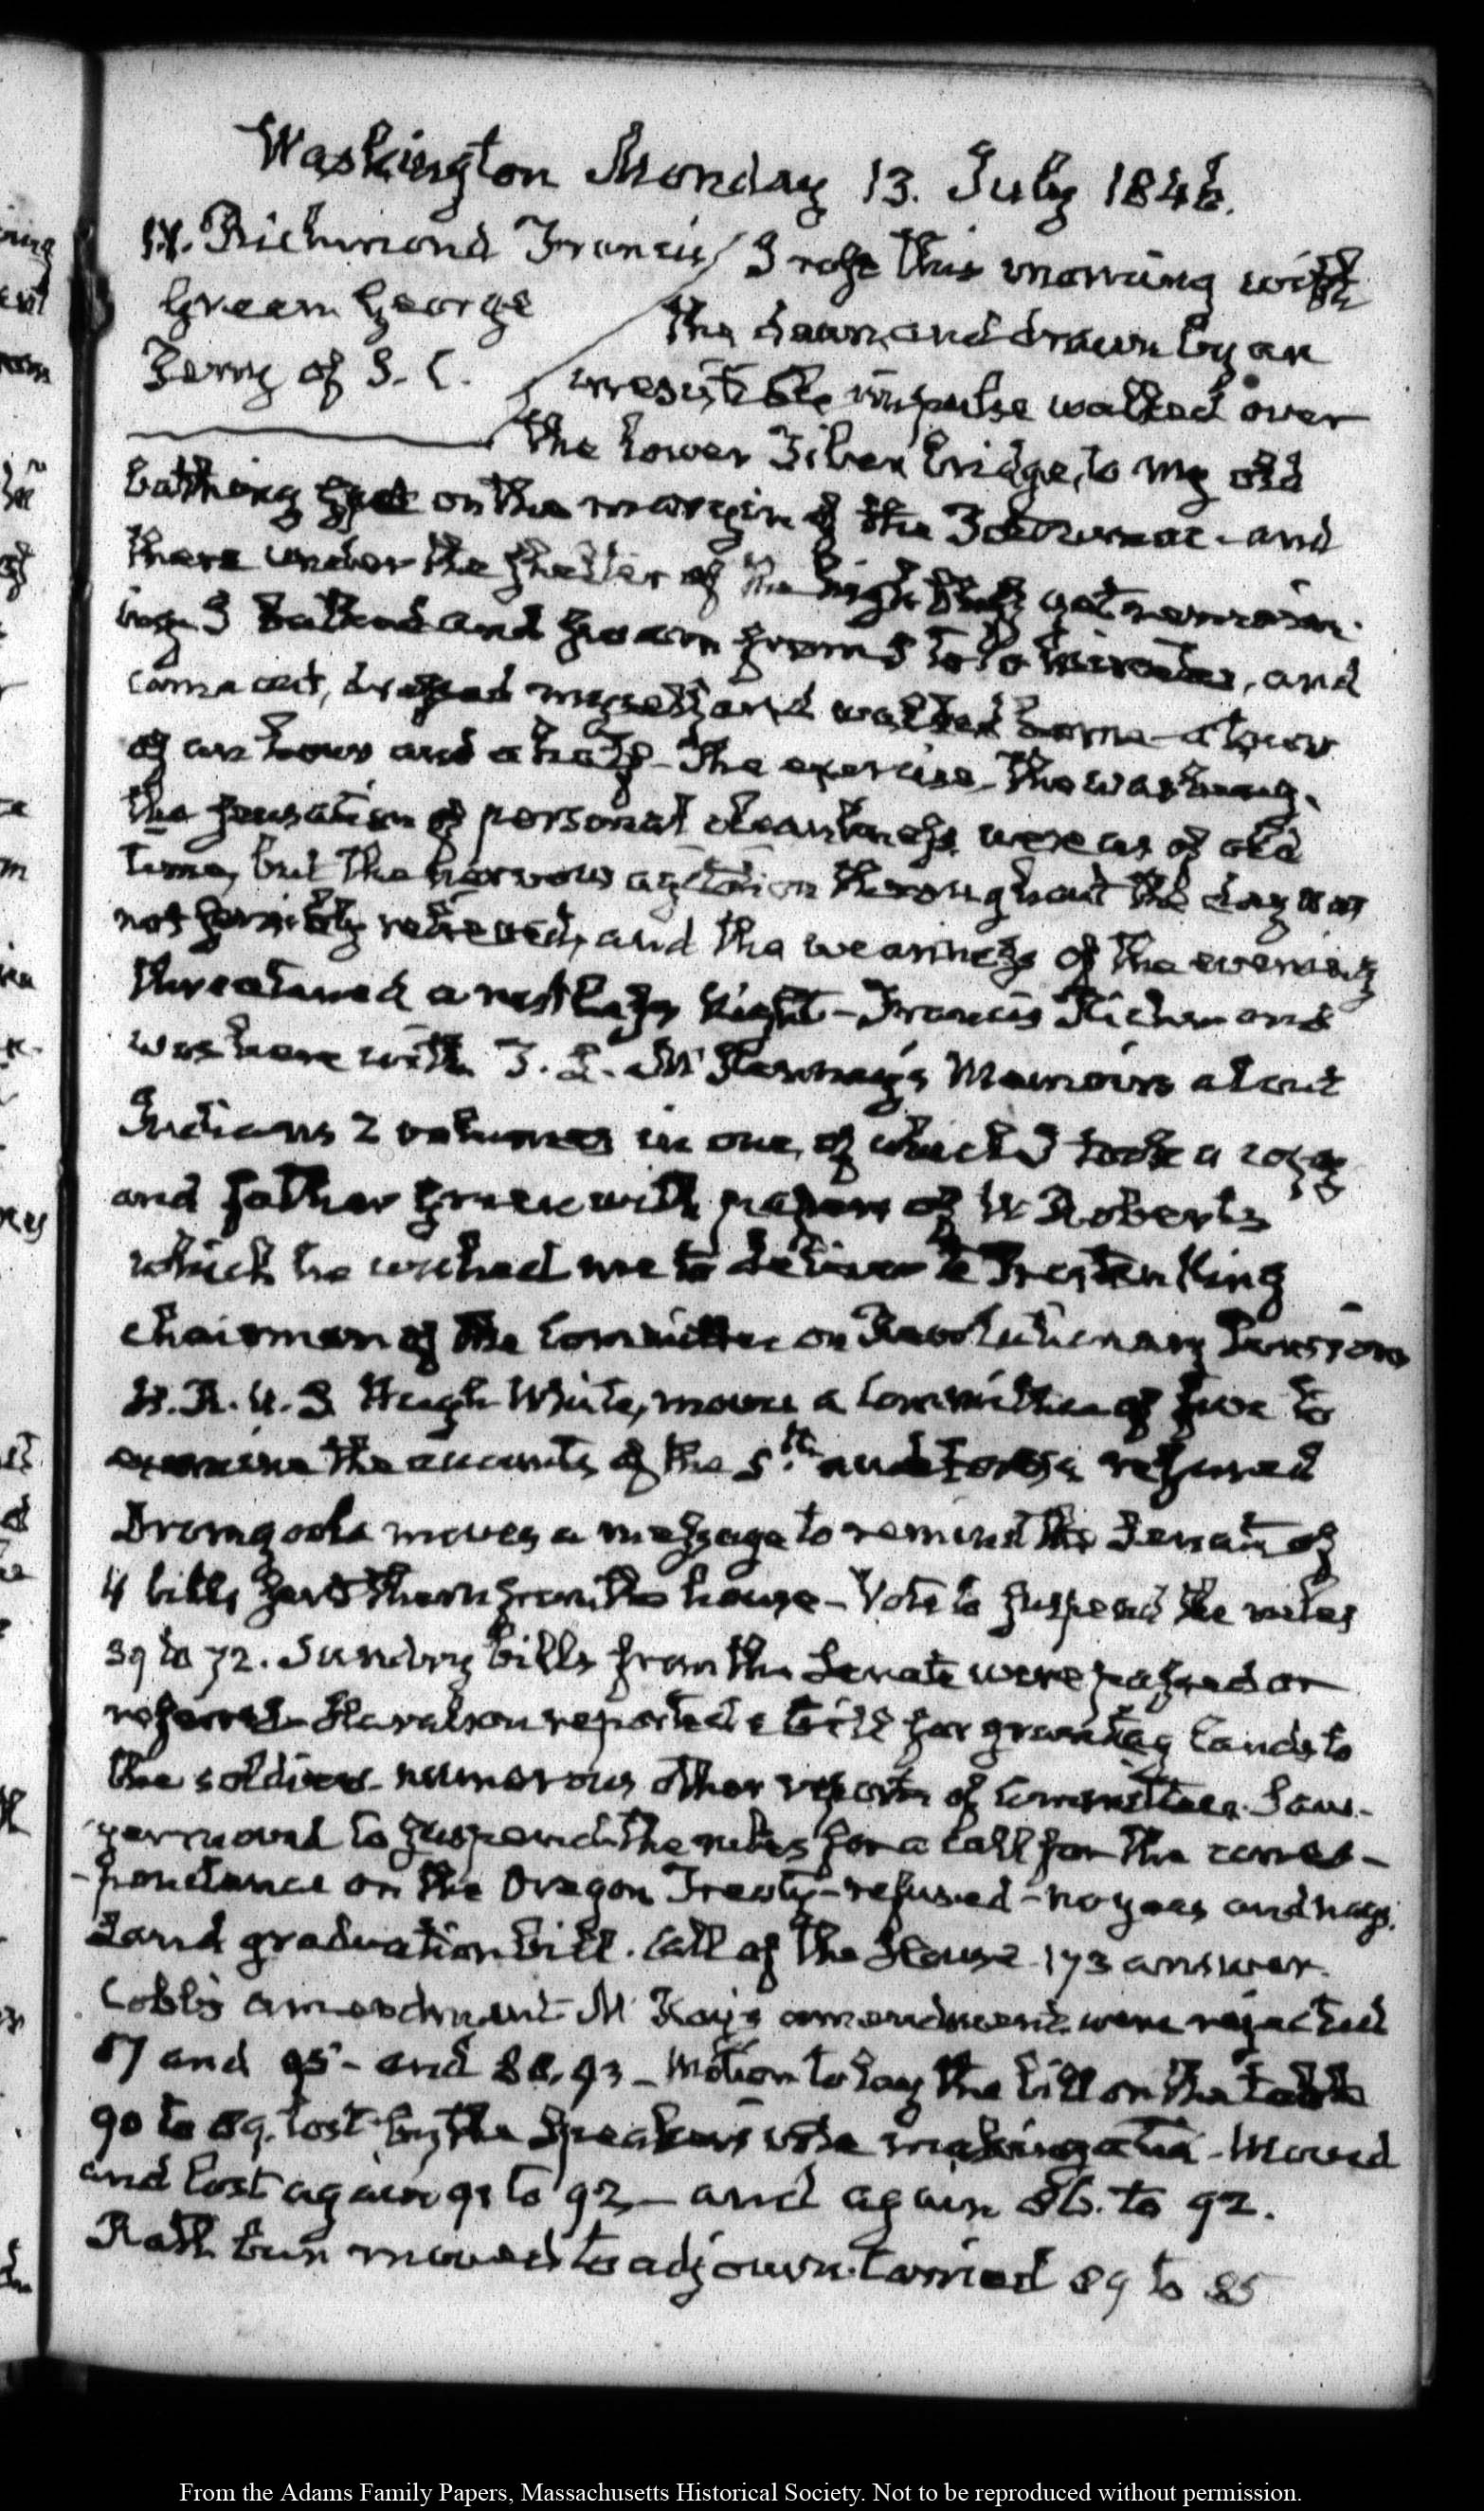 Washington Monday 13. July 1846.
IV. Richmond Francis
Green George
Perry of S. C.
I rose this morning with
the dawn, and drawn by an
irresistible impulse walked over
the lower Tiber bridge, to my old
bathing spot on the margin of the Potowmac - and
there under the shelter of the high
I bathed and swam from 5 to 10 minutes, and
came out, dressed myself and walked home - a tour
of an hour and a half - The exercise, the washing,
the sensation of personal cleanliness were as of old
time, but the nervous agitation throughout the day was
not sensibly relieved, and the weariness of the evening
threatened a restless Night - Francis Richmond
was here with T. L. McKenney's Memoirs about
Indians 2 volumes in one, of which I took a copy
and father Green with papers of W Roberts
which he wished me to deliver to Preston King
chairman of the Committee on Revolutionary Pensions
H. R. U. S. Hugh White, moves a Committee of five to
examine the accounts of the 5th auditor refused
Dromgoole moves a message to remind the Senate of
4 bills sent them from the house - Vote to suspend the rules
39 to 72. Sundry bills from the Senate were passed or
referred - Haralson reported a bill for granting Lands to
the soldiers - numerous other reports of Committees. Saw-
yer moved to suspend the rules for a call for the corres-
-pondence on the Oregon Treaty - refused - no yeas and nays.
Land graduation bill. Call of the House 173 answer.
Cobb's amendment McKay's amendment were rejected
87 and 95 - and 88, 93 - Motion to lay the bill on the table
90 to 89. lost by the Speakers vote making a tie - Moved
and lost again 91 to 92 - and again 86. to 92.
Rathbun moved to adjourn. Carried 89 to 85
From the Adams Family Papers, Massachusetts Historical Society. Not to be reproduced without permission.